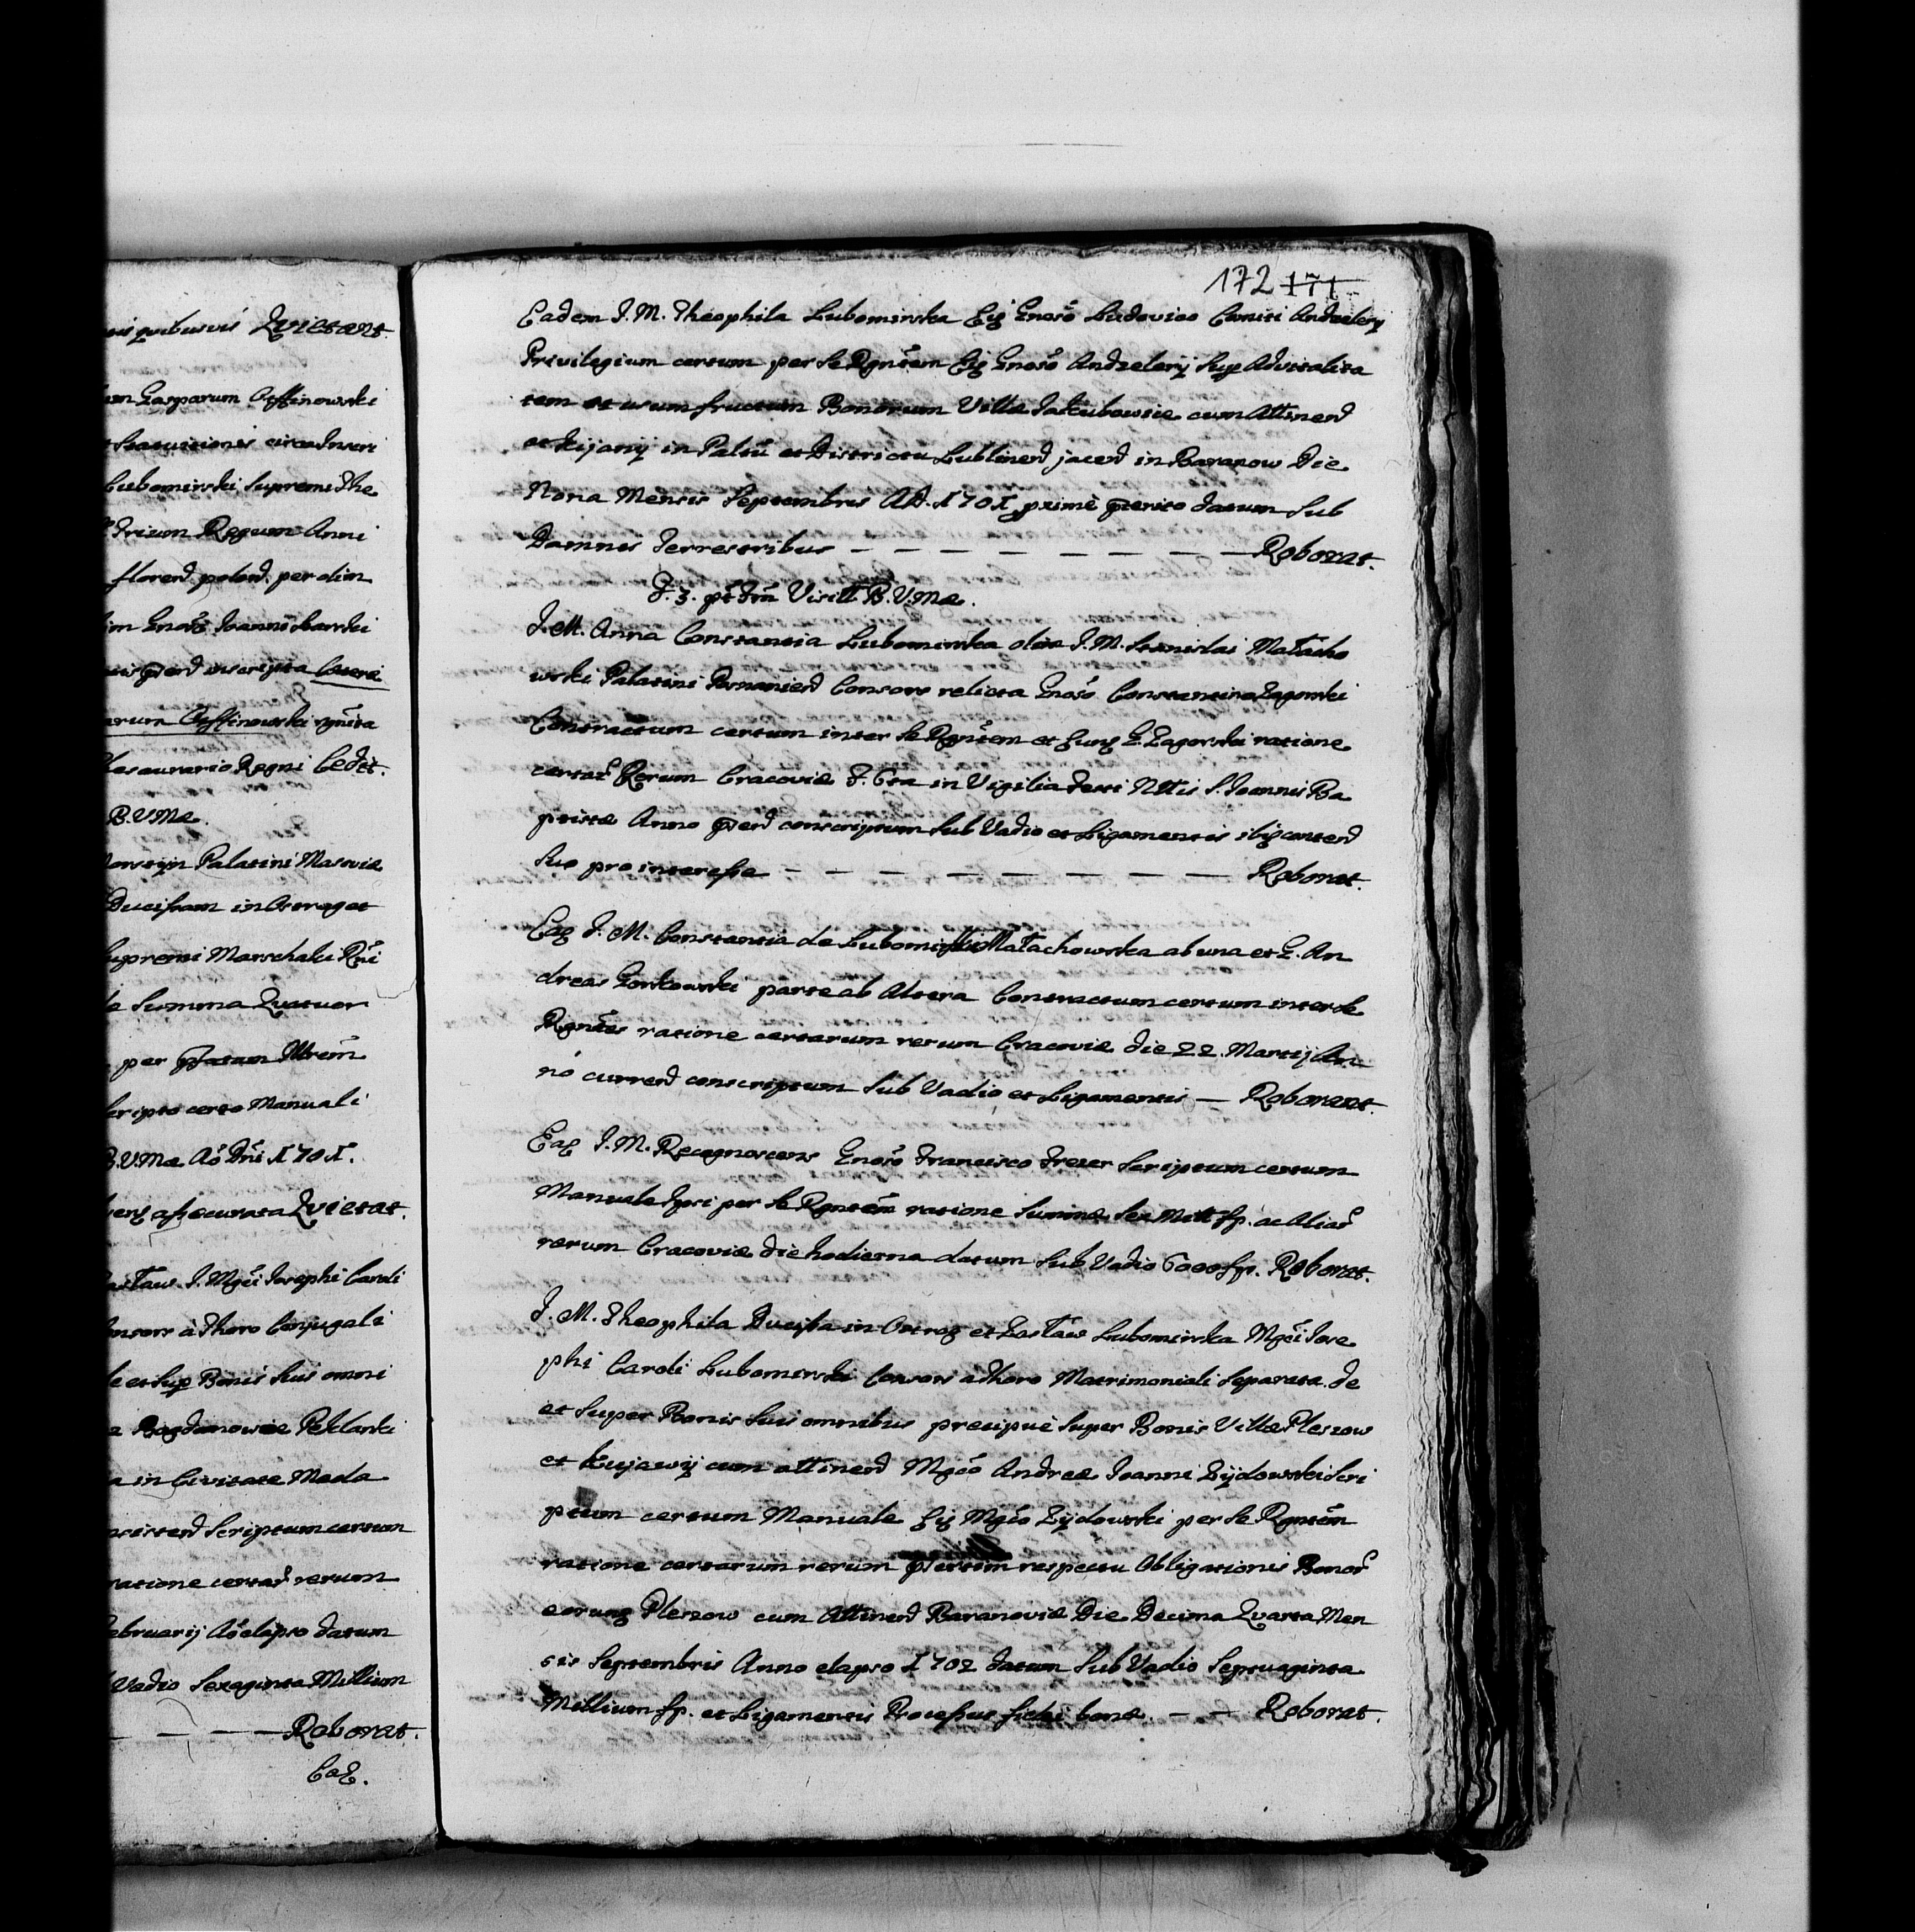 nis quibusvis Qvietant.
em Gasparum Cessinowski
Statuitionis circa Inseri
Lubomirski Supremi The
Trium Regum Anni
floren polon per olim
im Gnoso Joanne
pten inscripta Cavere
arum Cessinowski rgnita
Thesaurario Regni Cedit.
B.V.Mæ.
Palatini Masoviæ
Ducissam in Ostrog et
Supremi Marschalci Rni
de Summa Qvatuor
per pfatum Mbrem
Scripto certo Manuali
B.V.Mæ Aô Dni 1701.
assecurata Qvietat.
Zasław J. Mgci Josephi Caroli
Consors à Thoro Conjugali
de et Sup Bonis Suis omni
a Bogdanowice Peklanki
a in Civitate Meda
Scriptum certum
ratione certar rerum
Februarij Aô elapso datum
Vadio Sexaginta Millium
— — — Roborat.
Eað.
172 171
Eadem J. M. Theophila Lubomirska Gnoso Ludovico Comiti Andzelery
Privilegium certum per Se Rgntem Gnoso Andzelerÿ Sup Advitalita
tem et usum fructum Bonorum Villæ Jakubowice cum Attinen
et Kijany in Paltu et Districtu Lublinen jacen in Baranow Die
Nona Mensis Septembris AD. 1701 primè pterito datum Sub
Damnis Terrestribus — — — — — — — — Roborat.
F. 3. pt Fm Visitt. B. V. Mæ.
J. M. Anna Constantia Lubomirska olim J. M. Stanislai Małacho
wski Palatini Posnanien Consors relicta Gnoso Constantino Zagorski
Contractum certum inter Se Rgntem et G. Zagorski ratione
certar Rerum Cracoviæ F. 6ta in Vigilia Festi Nttis S. Joannis Ba
ptistæ Anno pten conscriptum Sub Vadio et Ligamentis conten
Suo pro interesse — — — — — — — Roborat.
J. M. Constantia de Małachowska ab una et G. An
dreas Gorkowski parte ab Altera Contractum certum inter Se
Rgntes ratione certarum rerum Cracoviæ die 22. Martij An
nô curren conscriptum Sub Vadio et Ligamentis — Roborant.
J. M. Recognoscens Gnoso Francisco Treter Scriptum certum
Manuale Ipsi per Se Rgntem ratione Summæ Sex Mill fp. ac Aliar
rerum Cracoviæ die hodierna datum Sub Vadio 6000 fp. Roborat.
J. M. Theophila Ducissa in Ostrog et Zasław Lubomirska Mgci Jose
phi Caroli Lubomirski Consors a Thoro Matrimoniali Separata de
et Super Bonis Suis omnibus precipuè Super Bonis Villæ Pleszow
et Kujawÿ cum attinen Mgco Andreæ Joanni Zÿdowski Scri
ptum certum Manuale Mgco Zÿdowski per Se Rgntem
ratione certarum rerum respectu Obligationis Bonor
Pleszow cum Attinen Baranoviæ Die Decima Qvarta Men
sis Septembris Anno elapso 1702 datum Sub Vadio Septuaginta
Millium fp. et Ligamentis Processus fidei bonæ. — — Roborat.